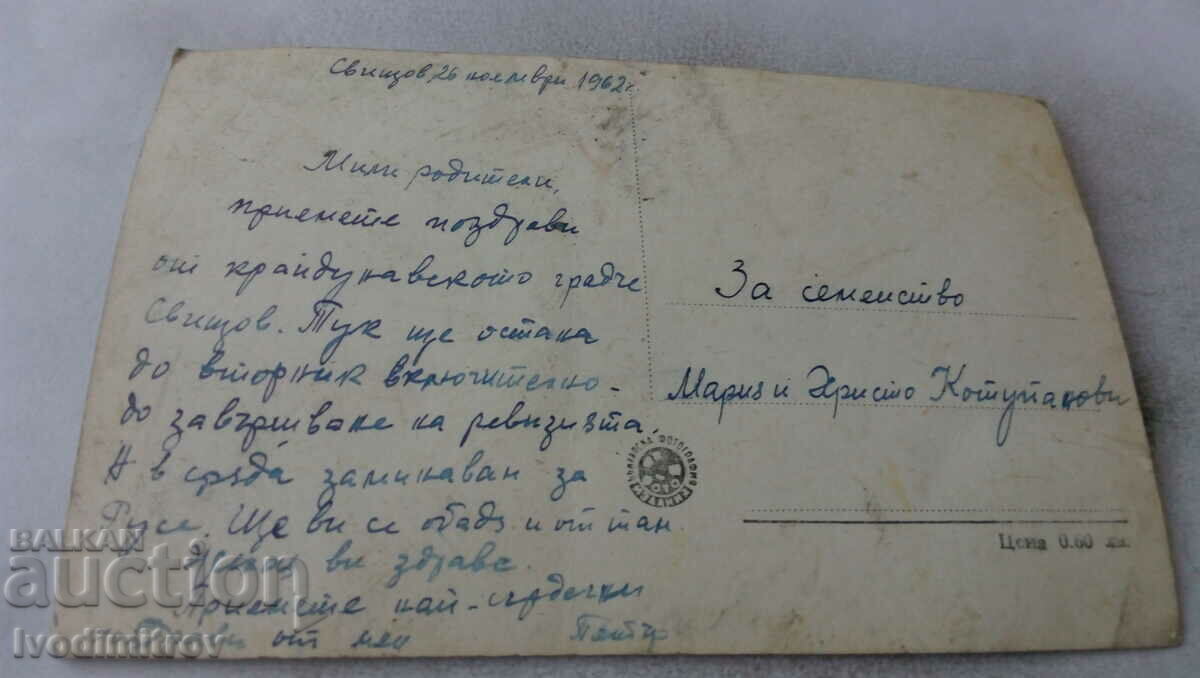 Свищов, 26 ноември 1962 г.
Мили родители,
приемете поздрави
от крайдунавското градче
Свищов. Тук ще остана
до вторник включително -
до завършване на ревизията.
А в сряда заминавам за
Русе. Ще ви се обадя и от там.
Желая ви здраве.
Приемете най-сърдечни
от мен Петър
За семейство
Мария и Христо Котупанови
БЪЛГАРСКА ФОТОГРАФИЯ
Цена 0.60 лв.
BALKAN
auction
Ivodimitrov